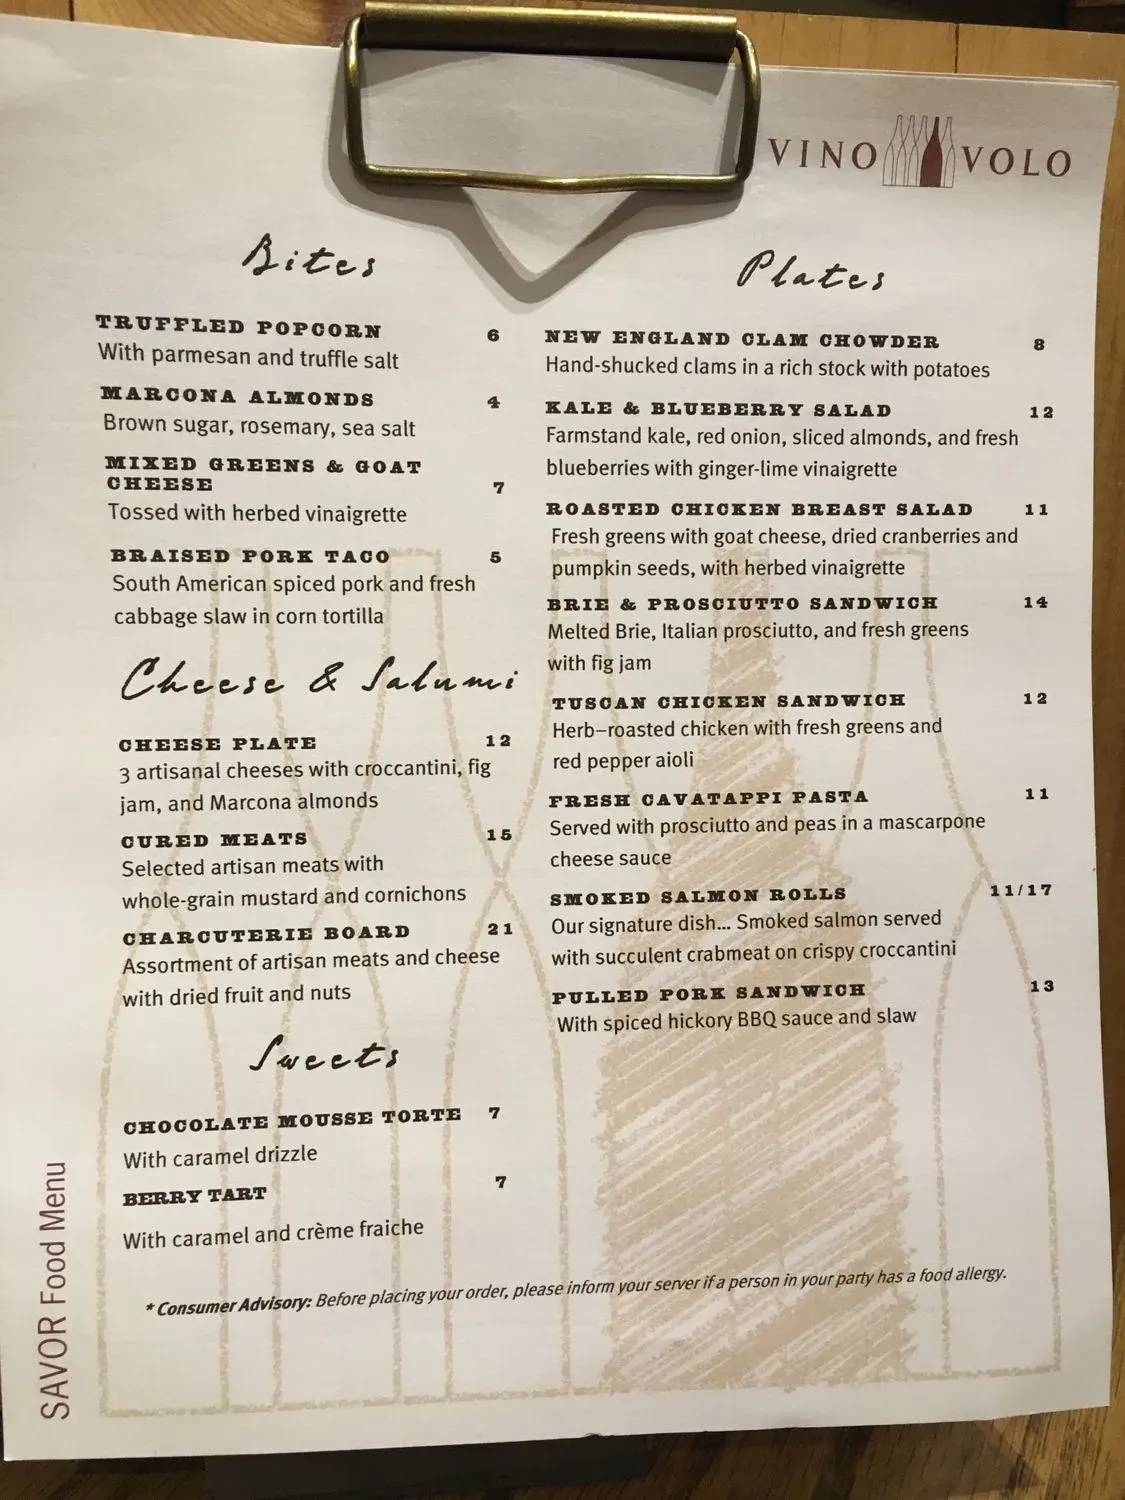 VINO VOLO
Bites
TRUFFLED POPCORN 6
With parmesan and truffle salt
MARCONA ALMONDS 4
Brown sugar, rosemary, sea salt
MIXED GREENS & GOAT
CHEESE 7
Tossed with herbed vinaigrette
BRAISED PORK TACO 5
South American spiced pork and fresh
cabbage slaw in corn tortilla
Cheese & Salumi
CHEESE PLATE 12
3 artisanal cheeses with croccantini, fig
jam, and Marcona almonds
CURED MEATS 15
Selected artisan meats with
whole-grain mustard and cornichons
CHARCUTERIE BOARD 21
Assortment of artisan meats and cheese
with dried fruit and nuts
Sweets
CHOCOLATE MOUSSE TORTE 7
With caramel drizzle
BERRY TART 7
With caramel and crème fraiche
Plates
NEW ENGLAND CLAM CHOWDER 8
Hand-shucked clams in a rich stock with potatoes
KALE & BLUEBERRY SALAD 12
Farmstand kale, red onion, sliced almonds, and fresh
blueberries with ginger-lime vinaigrette
ROASTED CHICKEN BREAST SALAD 11
Fresh greens with goat cheese, dried cranberries and
pumpkin seeds, with herbed vinaigrette
BRIE & PROSCIUTTO SANDWICH 14
Melted Brie, Italian prosciutto, and fresh greens
with fig jam
TUSCAN CHICKEN SANDWICH 12
Herb–roasted chicken with fresh greens and
red pepper aioli
FRESH CAVATAPPI PASTA 11
Served with prosciutto and peas in a mascarpone
cheese sauce
SMOKED SALMON ROLLS 11/17
Our signature dish... Smoked salmon served
with succulent crabmeat on crispy croccantini
PULLED PORK SANDWICH 13
With spiced hickory BBQ sauce and slaw
* Consumer Advisory: Before placing your order, please inform your server if a person in your party has a food allergy.
SAVOR Food Menu